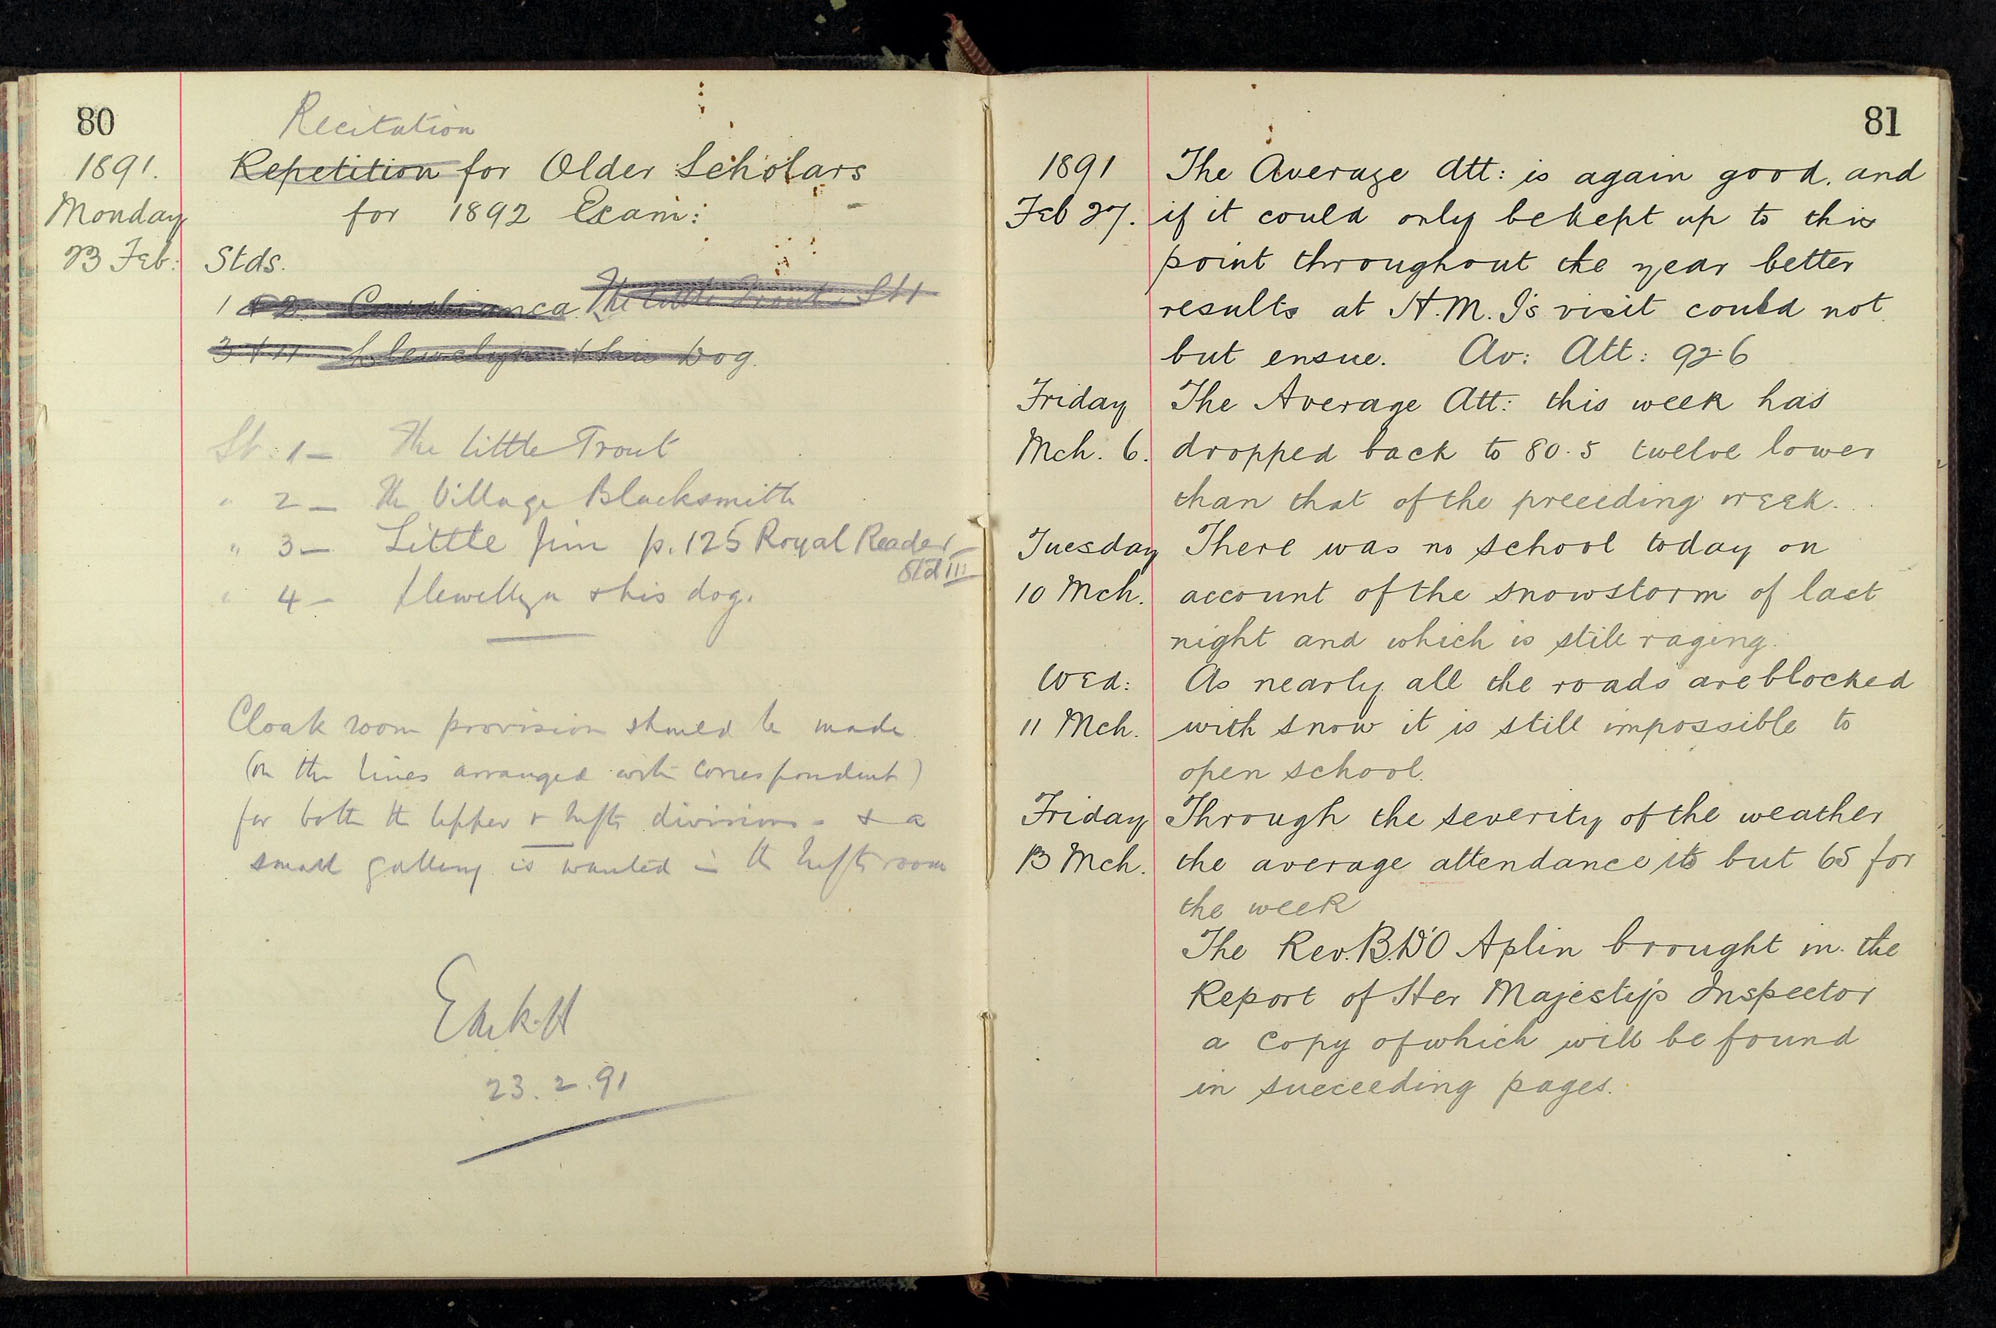 80
Recitation
1891. Repetition for Older Scholars
Monday for 1892 Exam:
23 Feb: Stds.
1 & 2 Casabianca The little Trout St 1
3 & 4 Llewelyn & his Dog.
St: 1 — The little Trout
" 2 — The Village Blacksmith
" 3 — Little Jim p. 125 Royal Reader
Std III
" 4 — Llewellyn & his dog.
Cloak room provision should be made
(on the lines arranged with correspondent)
for both the Upper & Infts divisions - & a
small gallery is wanted in the Infts room
23.2.91
81
1891 The Average Att: is again good, and
Feb 27. if it could only be kept up to this
point throughout the year better
results at H.M.I's visit could not
but ensue. Av: Att: 92.6
Friday The Average Att: this week has
Mch. 6. dropped back to 80.5 twelve lower
than that of the preceeding week.
Tuesday There was no school today on
10 Mch. account of the snowstorm of last
night and which is still raging.
Wed: As nearly all the roads are blocked
11 Mch. with snow it is still impossible to
open school.
Friday Through the severity of the weather
13 Mch. the average attendance is but 65 for
the week
The Rev. B. D'O Aplin brought in the
Report of Her Majesty's Inspector
a copy of which will be found
in succeeding pages.